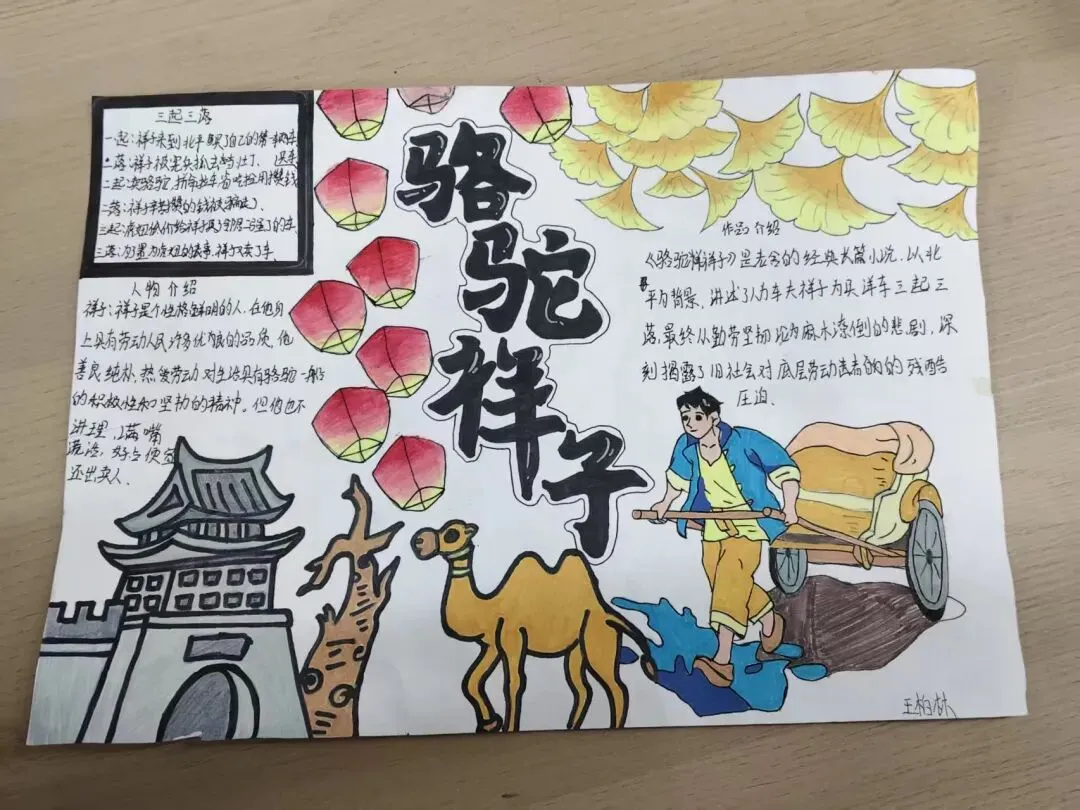 三起三落
一起:祥子来到北平买了自己的第一辆车
一落:祥子被宪兵抓去当壮丁
二起:卖骆驼,拼命拉车省吃俭用攒钱
二落:祥子攒的钱
三起:虎妞给祥子买了的车.
三落:为置办虎妞的丧事,祥子又卖了车.
人物介绍
祥子:祥子是个性格鲜明的人,在他身
上具有劳动人民许多优良的品质,他
善良纯朴,热爱劳动对生活具有骆驼一般
的积极性和坚韧的精神。但他也不
讲理,满嘴
谎话,好占便宜
还出卖人.
骆
驼
祥
子
作品介绍
《骆驼祥子》是老舍的经典长篇小说.以北
平为背景.讲述了人力车夫祥子为买洋车三起三
落,最终从勤劳坚韧沦为麻木潦倒的悲剧,深
刻揭露了旧社会对底层劳动者的的残酷
压迫.
王柏林